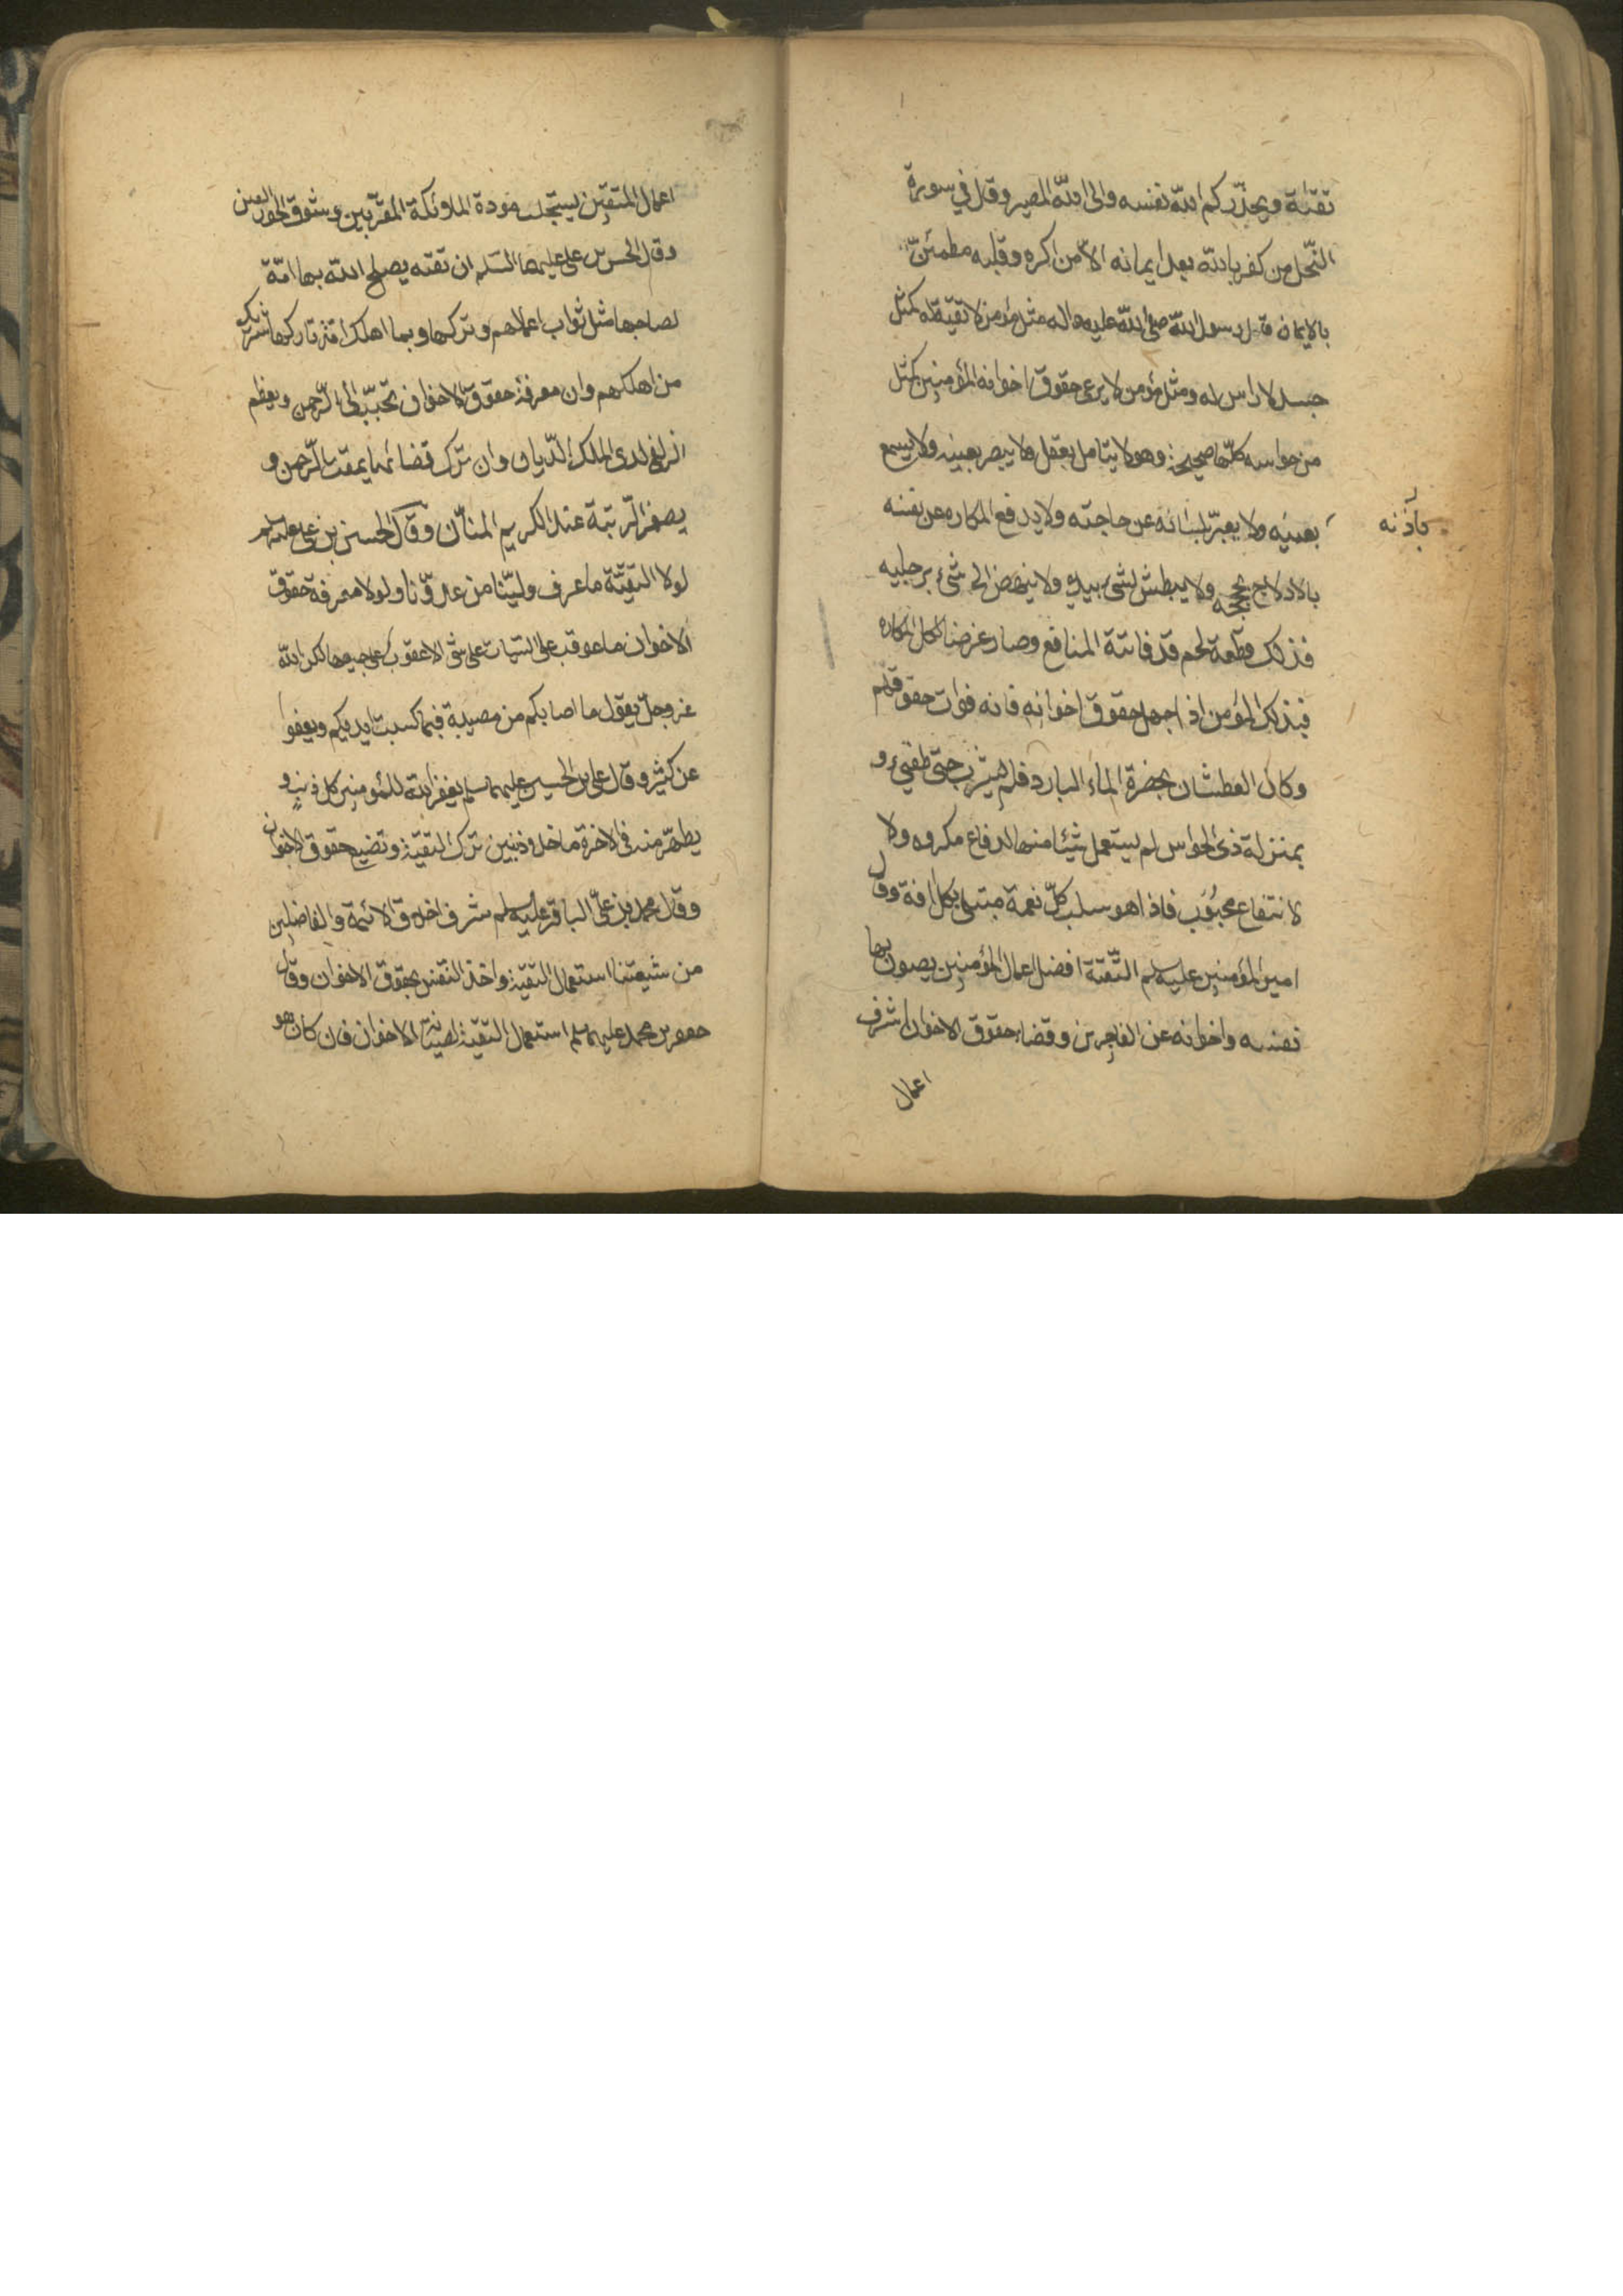 تقية ويحذّركم الله نفسه والى الله المصير وقال في سورة
النّحل من كفر بالله بعد ايمانه الا من اكره وقلبه مطمئنّ
بالايمان قال رسول الله صلى الله عليه واله مثل مؤمن لا تقيّة له كمثل
جسد لا راس له ومثل مؤمن لا يرعى حقوق اخوانه المؤمنين كمثل
من حواسه كلّها صحيحة وهو لا يتامل بعقله ولا يبصر بعينه ولا يسمع
بعينيه ولا يعبّر بلسانه عن حاجته ولا يدفع المكاره عن نفسه
باذنه
بالادلاج بحججه ولا يبطش لشئ بيديه ولا ينهض الى شئ برجليه
فذلك قطعة لحم قد فاتته المنافع وصار غرضا لكل المكاره
فبذلك المؤمن اذا جهل حقوق اخوانه فانه فوات حقوقهم
وكان العطشان بحضرة الماء البارد فلم يشرب حتى طفئ و
بمنزلة ذى الحواس لم يستعمل شيئا منها لدفاع مكروه ولا
لانتفاع محبوب فاذا هو سلب كلّ نعمة مبتلى بكل افة وقال
امير المؤمنين عليه سلم التّقية افضل اعمال المؤمنين يصون بها
نفسه واخوانه عن الفاجرين وقضاء حقوق الاخوان اشرف
اعمال
اعمال المتقين يستجلب مودة الملائكة المقرّبين وشوق الحور العين
وقال الحسن بن على عليهما السّلم ان تقية يصلح الله بها امّة
لصاحبها مثل ثواب اعمالهم وتركها وبما اهلك امّة تاركها شريك
من اهلكهم وان معرفة حقوق الاخوان تحبّب الى الرّحمن ويعظم
الزلفى لدى الملك الدّيان وان ترك قضائها يمقت الرّحمن و
يصغر الرّتبة عند الكريم المنّان وقال الحسين بن على عليه سلم
لولا التقيّة ما عرف وليّنا من عدوّنا ولولا معرفة حقوق
الاخوان ما عوقب على السّيات على شئ الا عقوب على جميعها لكن الله
عز وجلّ يقول ما اصابكم من مصيبة فبما كسبت ايديكم ويعفوا
عن كثير وقال على بن الحسين عليهما سلم يغفر الله للمؤمنين كل ذنب و
يطهّر منه في الاخرة ما خلا ذنبين ترك التقيّة وتضيع حقوق الاخوان
وقال محمد بن علىّ الباقر عليه سلم شرف اخلاق الائمة والفاضلين
من شيعتنا استعمال التقيّة واخذ النفس بحقوق الاخوان وقال
جعفر بن محمد عليهما سلم استعمال التقيّة لصيانة الاخوان فان كان هو